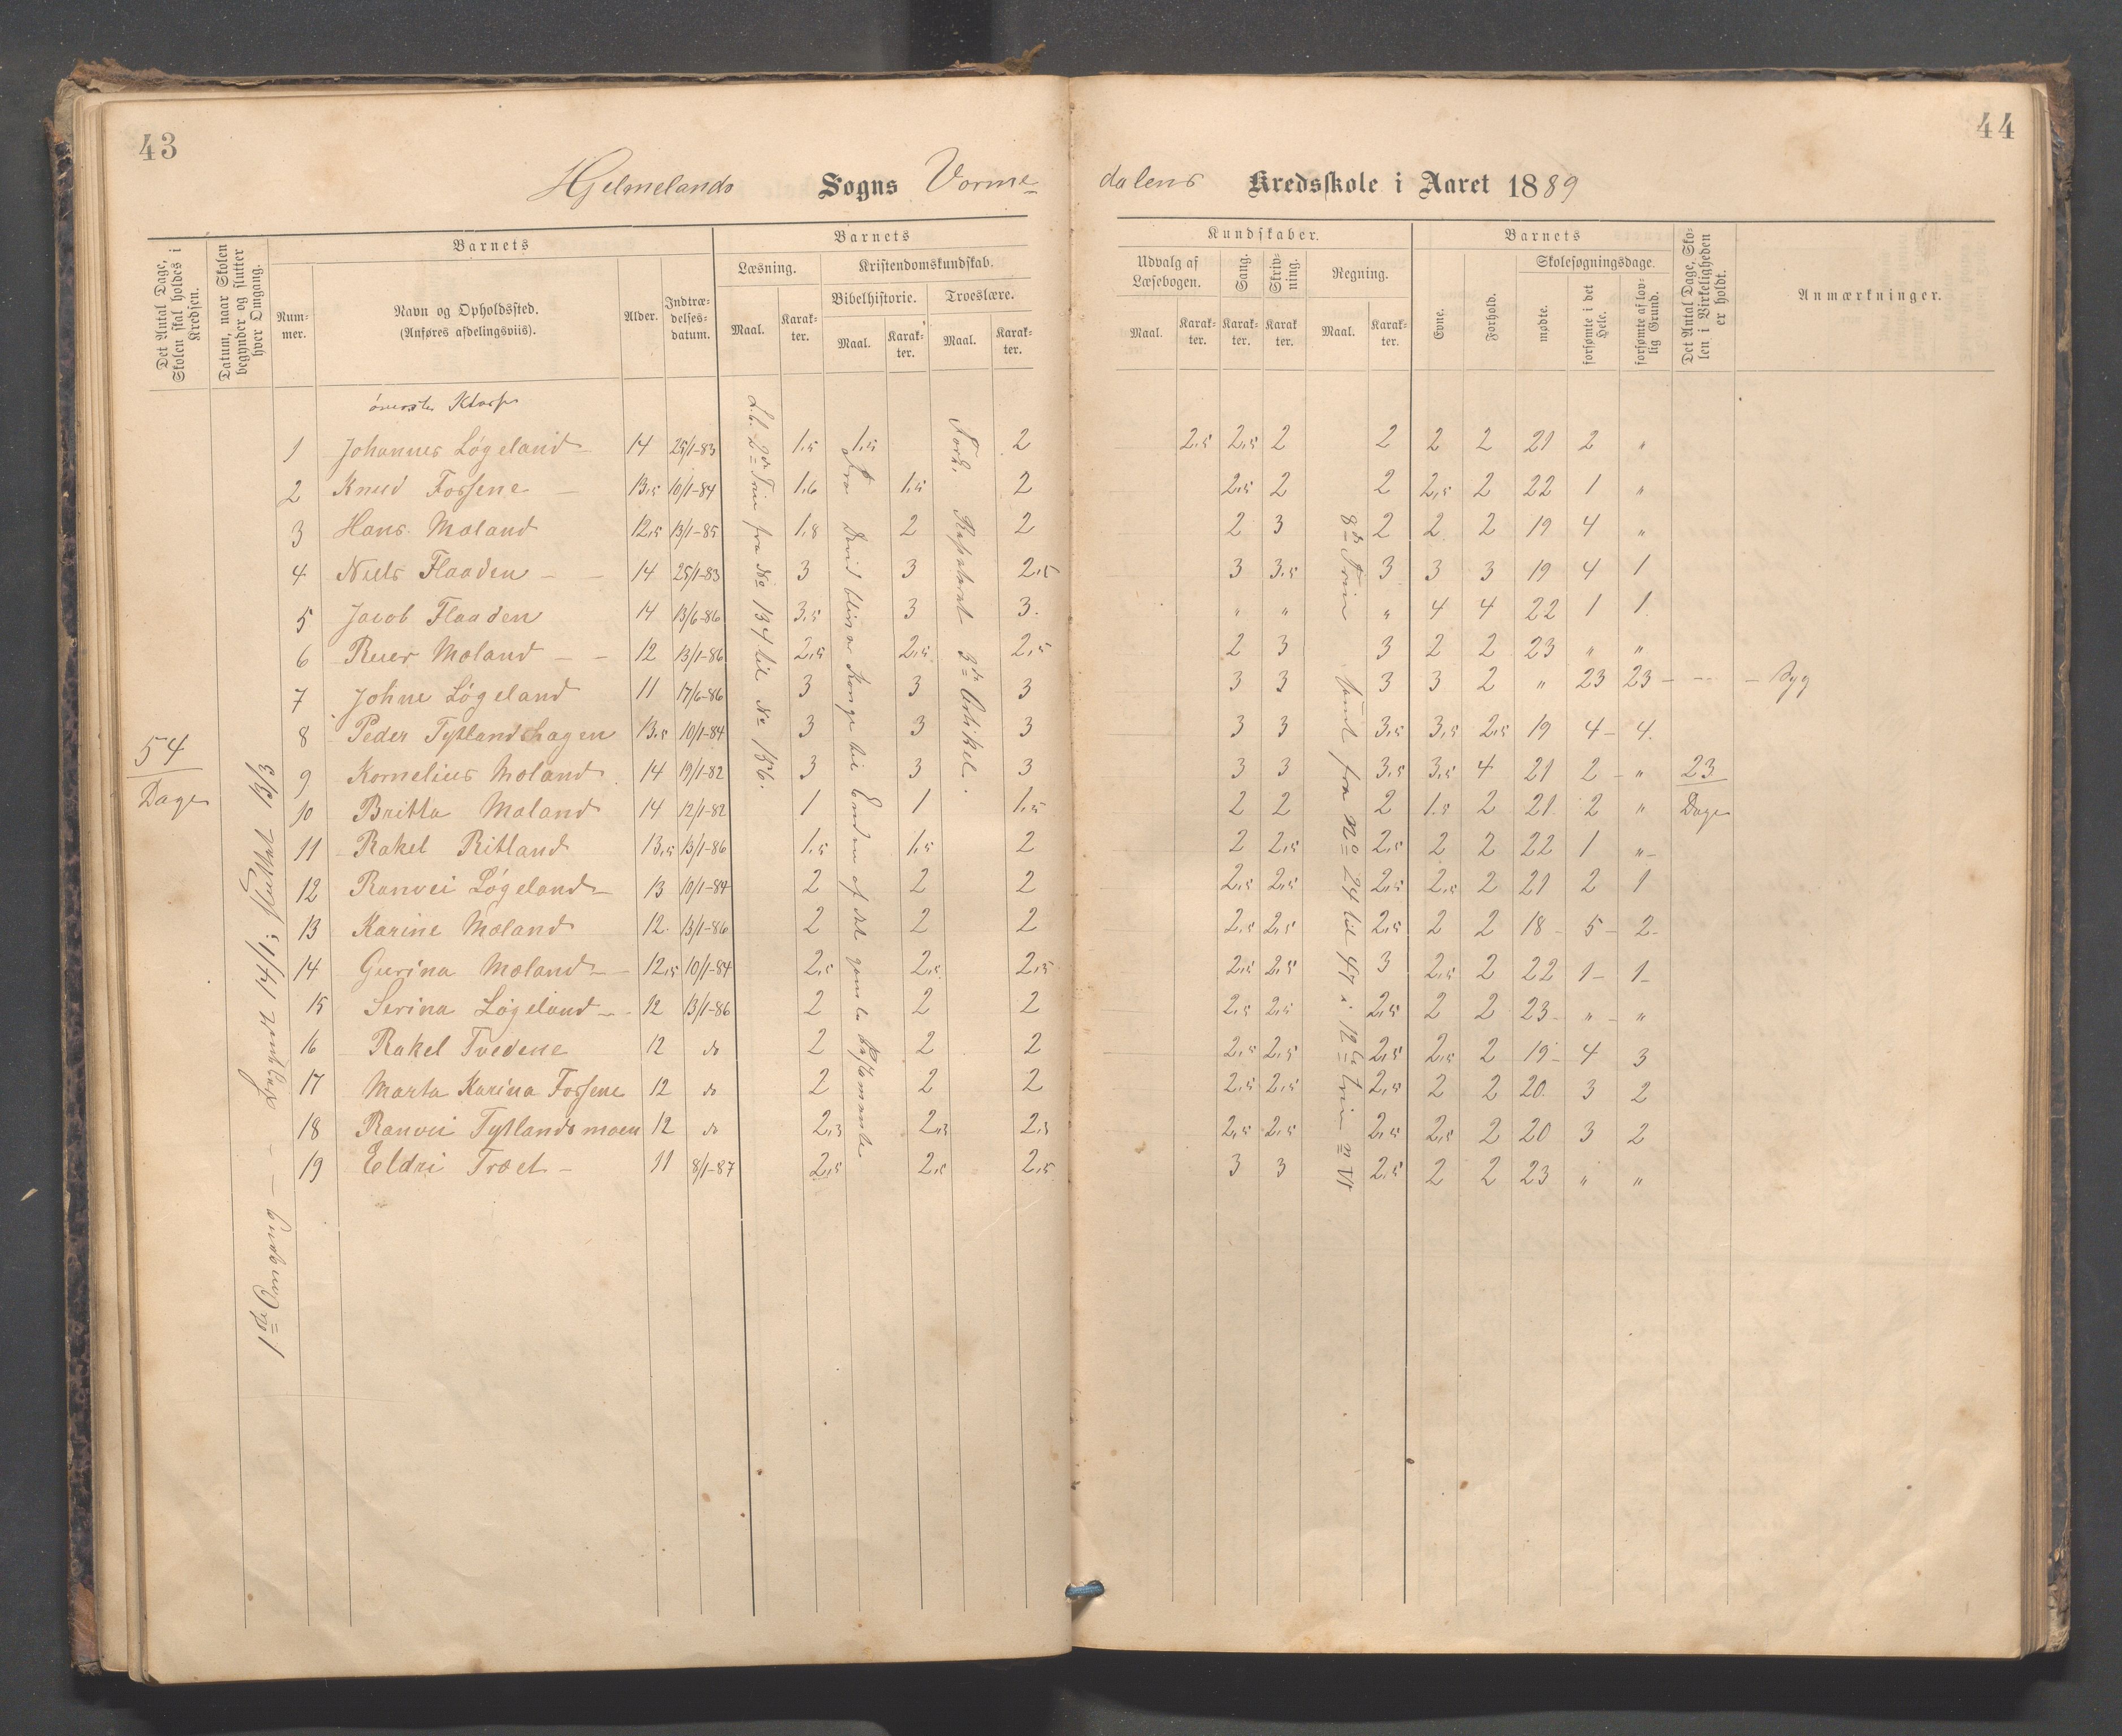 43
44
Hjelmelands Sogns Vorme-
dalens Kredsskole i Aaret 1889
Det Antal Dage, Skolen skal holdes i Kredsen.
Datum, naar Skolen begynder og slutter hver Omgang.
Barnets
Num-
mer.
Navn og Opholdssted.
(Anføres afdelingsviis).
Alder.
Indtræ-
delses-
datum.
Barnets
Læsning.
Maal.
Karak-
ter.
Kristendomskundskab.
Bibelhistorie.
Maal.
Karak-
ter.
Troeslære.
Maal.
Karak-
ter.
Kundskaber.
Udvalg af
Læsebogen.
Maal.
Karak-
ter.
Sang.
Karak-
ter.
Skriv-
ning.
Karak
ter.
Regning.
Maal.
Karak-
ter.
Barnets
Evne.
Forhold.
Skolesøgningsdage.
mødte.
forsømte i det
Hele.
forsømte af lov-
lig Grund.
Det Antal Dage, Sko-
len i Virkeligheden
er holdt.
Anmærkninger.
øverste Klasse
1 Johannes Løgeland 14 25/1-83 1,5 1,5 2 2,5 2,5 2 2 2 2 21 2 "
2 Knud Fossene 13,5 10/1-84 1,6 1,5 2 2,5 2 2 2,5 2 22 1 "
3 Hans Moland 12,5 13/1-85 1,8 2 2 2 3 2 2 2 19 4 "
4 Niels Flaaden 14 25/1-83 3 3 2,5 3 3,5 3 3 3 19 4 1
5 Jacob Flaaden 14 13/6-86 3,5 3 3. " " " 4 4 22 1 1
6 Reier Moland 12 13/1-86 2,5 2,5 2,5 2 3 3 2 2 23 " "
7 Johne Løgeland 11 17/6-86 3 3 3 3 3 3 3 2 " 23 23 Syg
8 Peder Tytlandshagen 13,5 10/1-84 3 3 3 3 3 3,5 3,5 2,5 19 4 4.
9 Kornelius Moland 14 19/1-82 3 3 3 3 3 3,5 3,5 4 21 2 " 23
10 Britta Moland 14 12/1-82 1 1 1,5 2 2 2 1,5 2 21 2 " Dage
11 Rakel Ritland 13,5 13/1-86 1,5 1,5 2 2 2,5 2,5 2 2 22 1 "
12 Ranvei Løgeland 13 10/1-84 2 2 2 2,5 2,5 2,5 2,5 2 21 2 1
13 Karine Moland 12 13/1-86 2 2 2 2,5 2,5 2,5 2 2 18 5 2
14 Gurina Moland 12,5 10/1-84 2,5 2,5 2,5 2,5 2,5 3 2,5 2 22 1 1
15 Serina Løgeland 12 13/1-86 2 2 2 2,5 2,5 2,5 2 2 23 " "
16 Rakel Tvedene 12 do 2 2 2 2,5 2,5 2,5 2,5 2 19 4 3
17 Marta Karina Fossene 12 do 2 2 2 2,5 2,5 2,5 2 2 20 3 2
18 Ranvei Tytlandsmoen 12 do 2,3 2,3 2,3 2,5 2,5 2,5 2,5 2 20 3 2
19 Eldri Træet 11 8/1-87 2,5 2,5 2,5 3 3 2,5 2 2 23 " "
54
Dage
1ste Omgang - - Begyndt 14/1; sluttet 13/3
L.b. 2det Trin fra No 134 til No 156.
Fra David bliver Konge til Enden af det gamle Testamente
Fork. 3die Artikel.
8de Trin samt fra No 24 til 47 i 12te trin